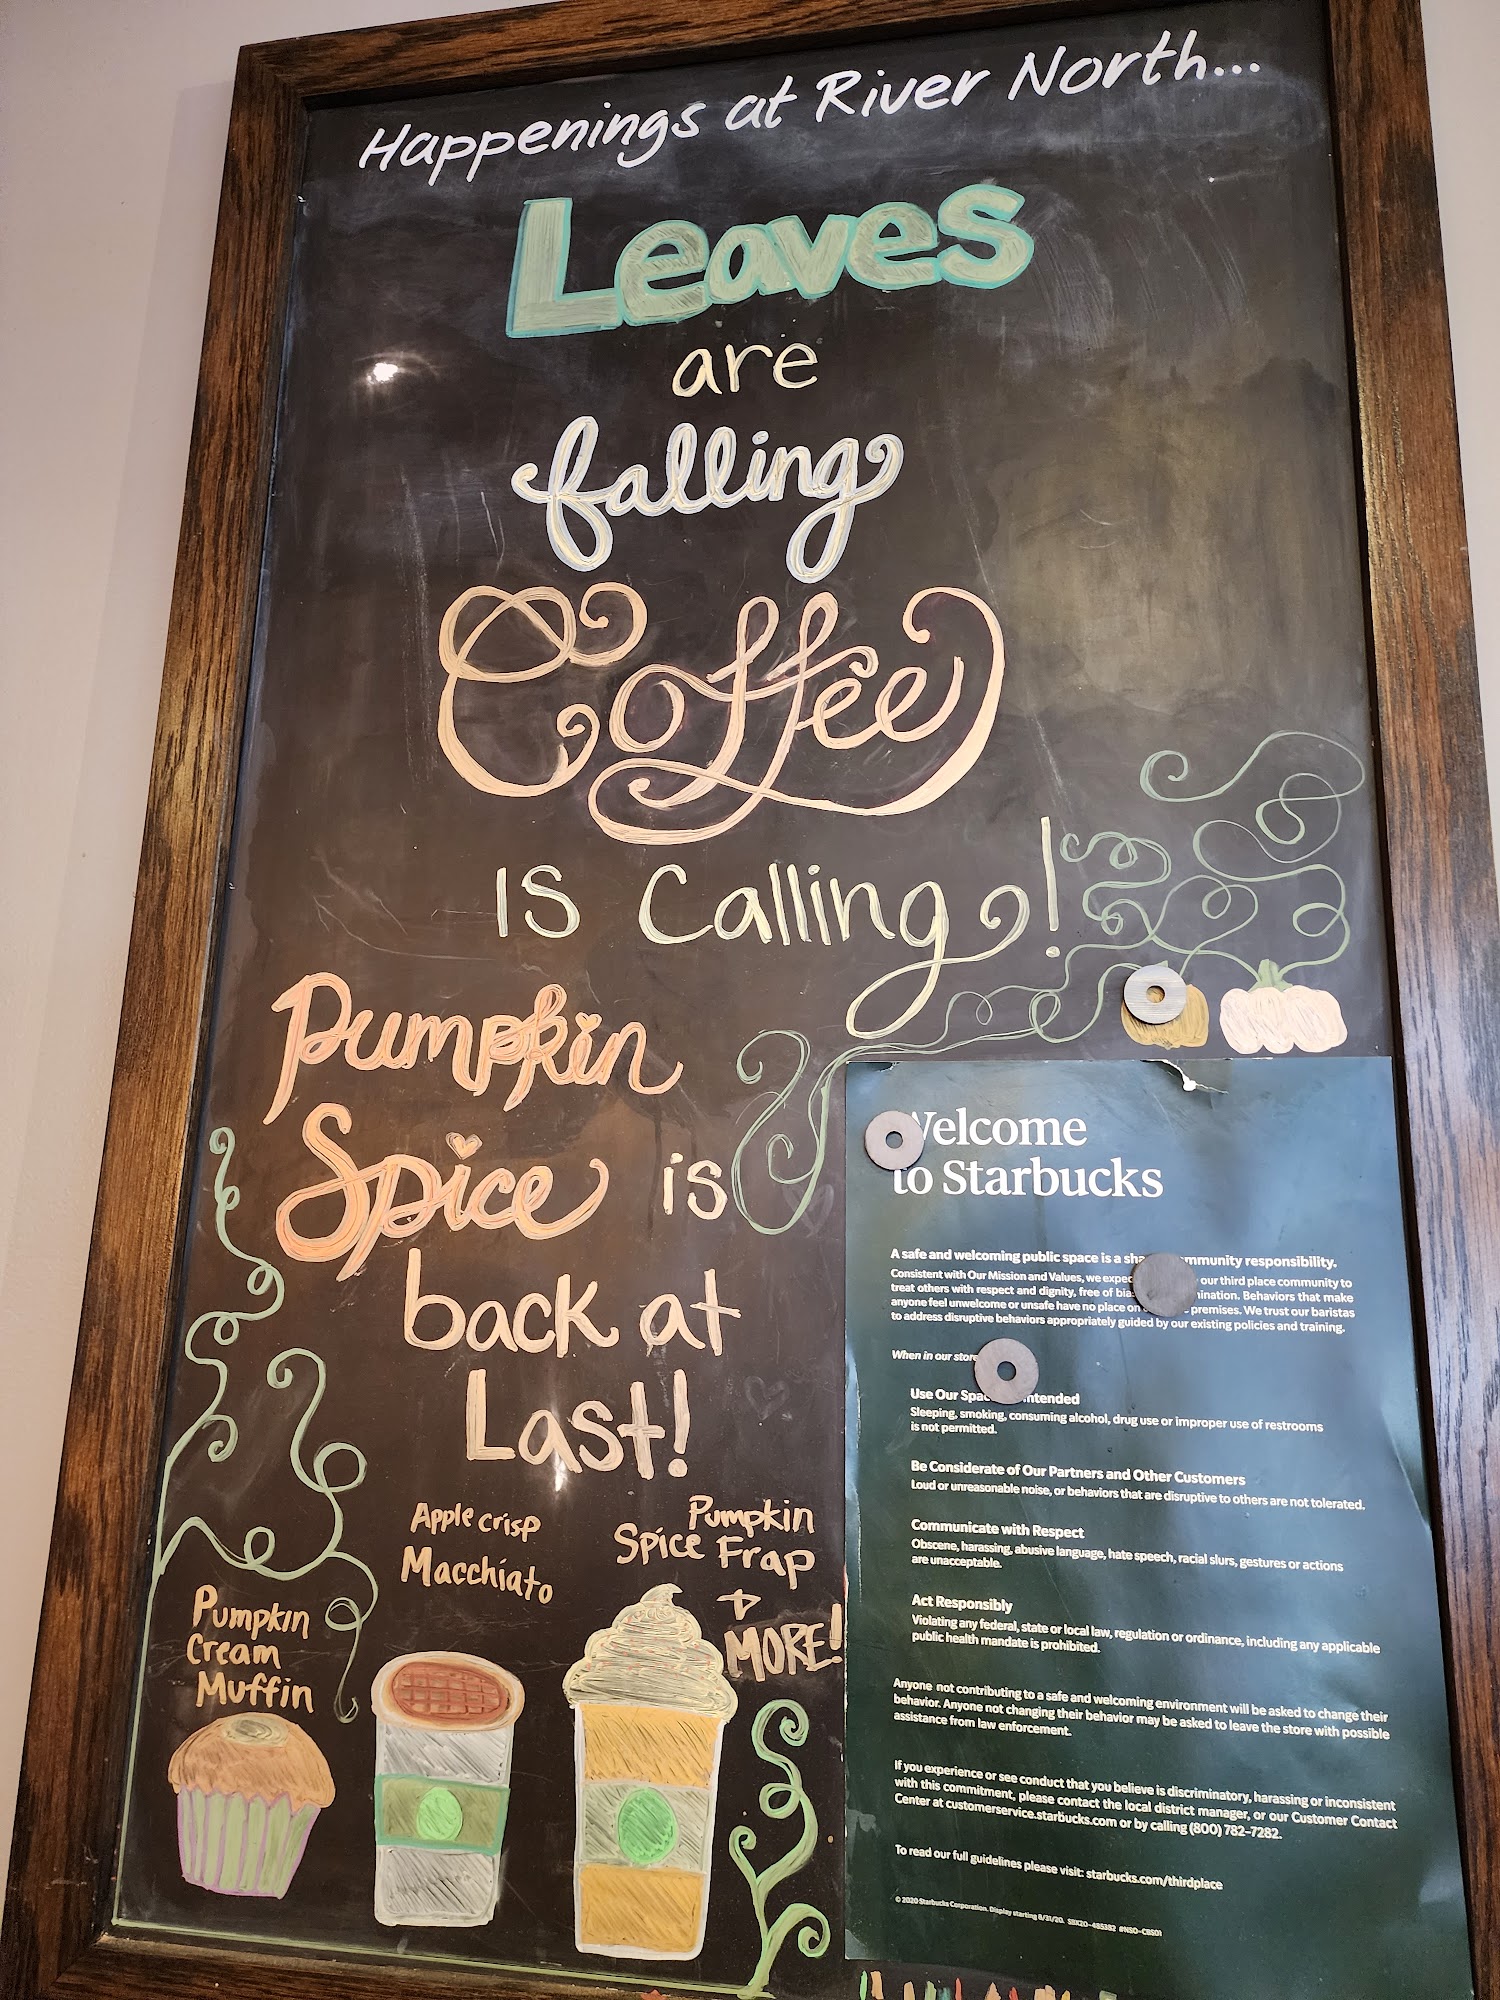 Happenings at River North...
Leaves
are
falling
Coffee
is Calling!
Pumpkin
Spice is
back at
Last!
Pumpkin
Cream
Muffin
Apple crisp
Macchiato
Pumpkin
Spice Frap
+
MORE!
Welcome
to Starbucks
A safe and welcoming public space is a community responsibility.
Consistent with Our Mission and Values, we our third place community to
treat others with respect and dignity, free of Behaviors that make
anyone feel unwelcome or unsafe have no place on premises. We trust our baristas
to address disruptive behaviors appropriately guided by our existing policies and training.
When in our store
Use Our Intended
Sleeping, smoking, consuming alcohol, drug use or improper use of restrooms
is not permitted.
Be Considerate of Our Partners and Other Customers
Loud or unreasonable noise, or behaviors that are disruptive to others are not tolerated.
Communicate with Respect
Obscene, harassing, abusive language, hate speech, racial slurs, gestures or actions
are unacceptable.
Act Responsibly
Violating any federal, state or local law, regulation or ordinance, including any applicable
public health mandate is prohibited.
Anyone not contributing to a safe and welcoming environment will be asked to change their
behavior. Anyone not changing their behavior may be asked to leave the store with possible
assistance from law enforcement.
If you experience or see conduct that you believe is discriminatory, harassing or inconsistent
with this commitment, please contact the local district manager, or our Customer Contact
Center at customerservice.starbucks.com or by calling (800) 782-7282.
To read our full guidelines please visit: starbucks.com/thirdplace
© 2020 Starbucks Corporation. Display starting 8/31/20. SBX20-485382 #NSO-CBS01